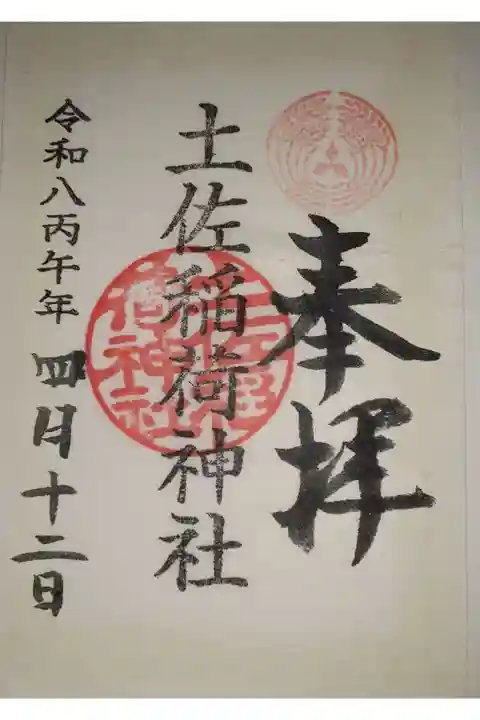 奉拝
土佐稲荷神社
令和八丙午年 四月十二日
土佐稲荷神社